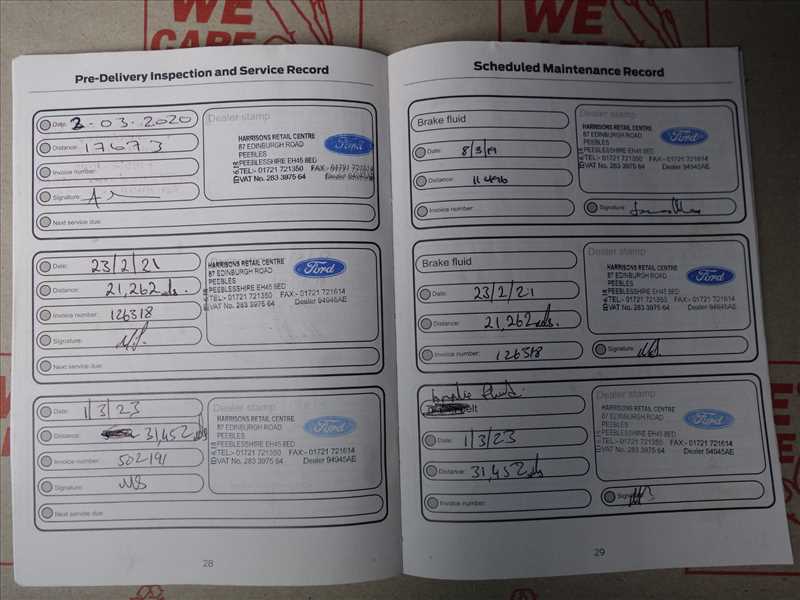 WE
CARE
WE
CARE
Pre-Delivery Inspection and Service Record
Date: 2-03-2020
Distance: 17673
Invoice number:
Signature:
Next service due:
Dealer stamp
HARRISONS RETAIL CENTRE
87 EDINBURGH ROAD
PEEBLES
PEEBLESSHIRE EH45 8ED
TEL:- 01721 721350 FAX:- 01721 721614
VAT No. 283 3975 64 Dealer 94945AE
Ford
Date: 23/2/21
Distance: 21,262
Invoice number: 126318
Signature:
Next service due:
HARRISONS RETAIL CENTRE
87 EDINBURGH ROAD
PEEBLES
PEEBLESSHIRE EH45 8ED
TEL:- 01721 721350 FAX:- 01721 721614
VAT No. 283 3975 64 Dealer 94945AE
Ford
Date: 1/3/23
Distance: 31,452
Invoice number: 502191
Signature: MB
Next service due:
Dealer stamp
HARRISONS RETAIL CENTRE
87 EDINBURGH ROAD
PEEBLES
PEEBLESSHIRE EH45 8ED
TEL:- 01721 721350 FAX:- 01721 721614
VAT No. 283 3975 64 Dealer 94945AE
Ford
28
Scheduled Maintenance Record
Brake fluid
Date: 8/3/19
Distance: 11496
Invoice number:
Dealer stamp
HARRISONS RETAIL CENTRE
87 EDINBURGH ROAD
PEEBLES
PEEBLESSHIRE EH45 8ED
TEL:- 01721 721350 FAX:- 01721 721614
VAT No. 283 3975 64 Dealer 94945AE
Ford
Signature:
Brake fluid
Date: 23/2/21
Distance: 21,262
Invoice number: 126318
Dealer stamp
HARRISONS RETAIL CENTRE
87 EDINBURGH ROAD
PEEBLES
PEEBLESSHIRE EH45 8ED
TEL:- 01721 721350 FAX:- 01721 721614
VAT No. 283 3975 64 Dealer 94945AE
Ford
Signature:
brake fluid.
Date: 1/3/23
Distance: 31,452
Invoice number:
Dealer stamp
HARRISONS RETAIL CENTRE
87 EDINBURGH ROAD
PEEBLES
PEEBLESSHIRE EH45 8ED
TEL:- 01721 721350 FAX:- 01721 721614
VAT No. 283 3975 64 Dealer 94945AE
Ford
29